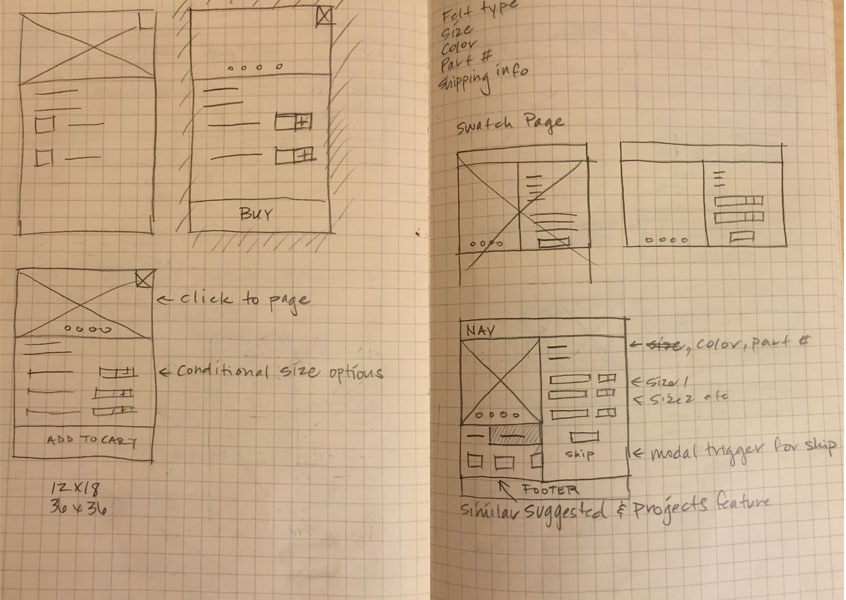 BUY
← click to page
← Conditional size options
ADD TO CART
12 x 18
36 x 36
Felt type
Size
Color
Part #
Shipping info
Swatch Page
NAV
← size, color, part #
← Size 1
← Size 2 etc
ship
← modal trigger for ship
FOOTER
Similar Suggested & Projects feature